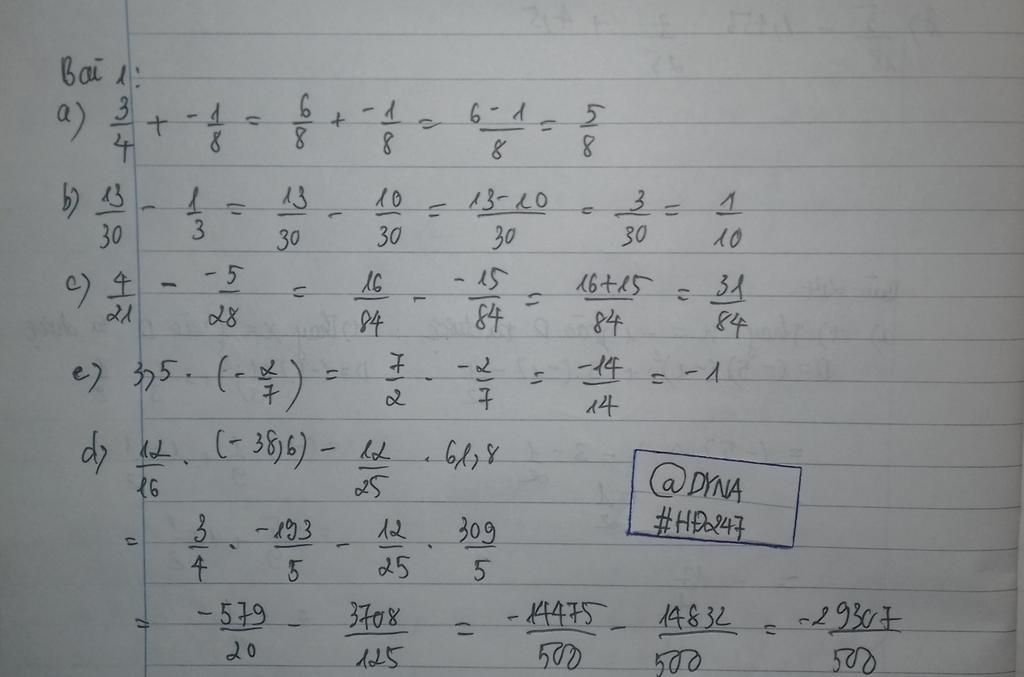 Bài 1:
a) 3/4 + -1/8 = 6/8 + -1/8 = 6-1/8 = 5/8
b) 13/30 - 1/3 = 13/30 - 10/30 = 13-10/30 = 3/30 = 1/10
c) 4/21 - -5/28 = 16/84 - -15/84 = 16+15/84 = 31/84
e) 3,5 . (-2/7) = 7/2 . -2/7 = -14/14 = -1
d) 12/16 . (-38,6) - 12/25 . 61,8
= 3/4 . -193/5 - 12/25 . 309/5
= -579/20 - 3708/125 = -14475/500 - 14832/500 = -29307/500
@DYNA
#HĐ247